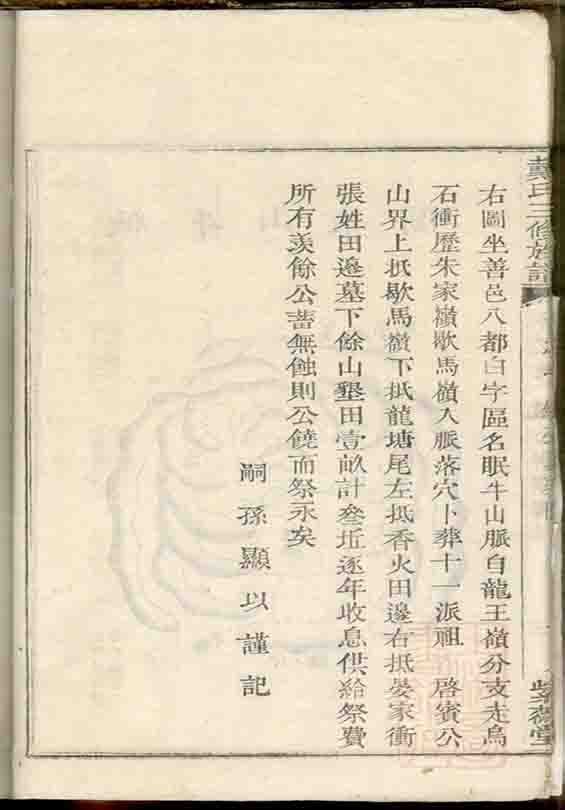 戴氏三修族譜
右圖坐善邑八都白字區名眠牛山脈自龍王嶺分支走烏
石衝歷朱家嶺歇馬嶺入脈落穴卜葬十一派祖 啓賓公
山界上抵歇馬嶺下抵龍塘尾左抵香火田邊右抵晏家衝
張姓田邊墓下餘山墾田壹畝計叁坵逐年收息供給祭費
所有羡餘公蓄無蝕則公饒而祭永矣
嗣孫顯以謹記